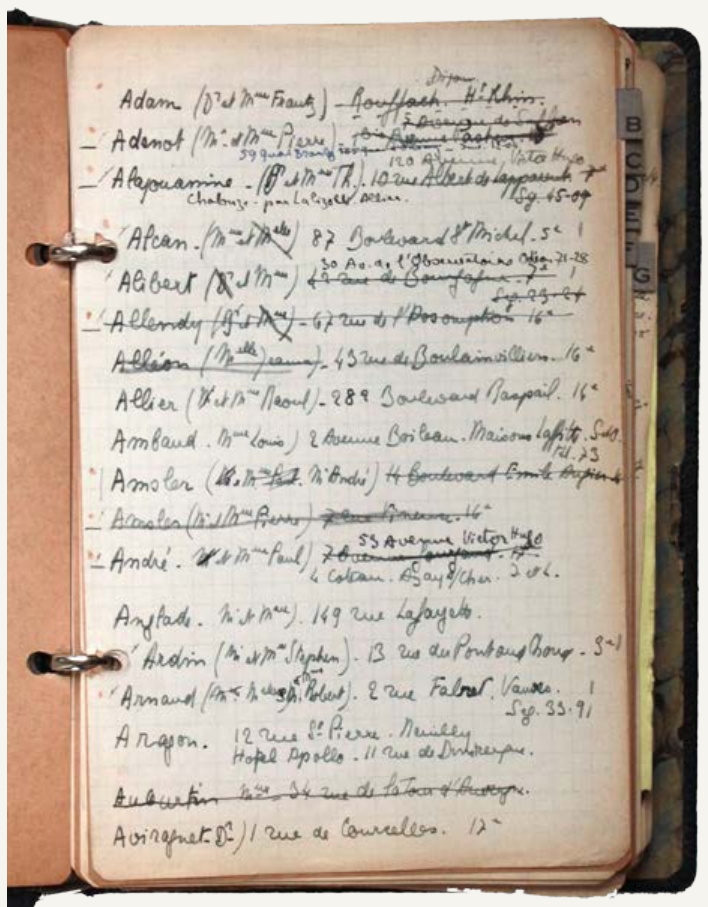 Dijon
Adam (Dr et Mme Frantz) - Rouffach. Ht Rhin.
5 Avenue de Suffren
Adenot (Mr et Mme Pierre)
59 quai
120 Avenue Victor Hugo
Alajouanine - (Dr et Mme Th.) 10 rue Albert de Lapparent 7e
Sg. 45-09
par Lalizolle Allier.
Alcan. (Mme et Melle) 87 Boulevard St Michel. 5e 1
30 Av. de l'Observatoire Odéon 71-28
Alibert (Dr et Mme) 42 rue de 7e 1
Seg. 23-24
Allendy (Dr et Mme) - 67 rue de l'Assomption 16e
Alléon (Melle Jeanne) - 43 rue de Boulainvilliers. 16e
Allier (Mr et Me Raoul) - 282 Boulevard Raspail. 14e
Ambaud. Mme Louis) 2 Avenue Boileau. Maisons Laffitte. S&O.
Tél. 73
Amsler (Mr André) 14 Boulevard Emile Augier
Amsler (Mr et Mme Pierre) 7 rue 16e
53 Avenue Victor Hugo
André. Mr et Mme Paul) 7 Avenue
Coteau. Azay s/Cher. I et L.
Anglade. Mr et Mme). 149 rue Lafayette.
Ardin (Mr et Me Stephen). 13 rue du Pont aux Choux - 3e 1
Arnaud (Robert). 2 rue Falret. Vanves. 1
Seg. 33-91
Aragon. 12 rue St Pierre. Neuilly
Hotel Apollo - 11 rue de Dunkerque.
Auburtin Mme - 34 rue de la Tour d'Auvergne.
Aviragnet. Dr) 1 rue de Courcelles. 17e
B
C
D
E
F
G